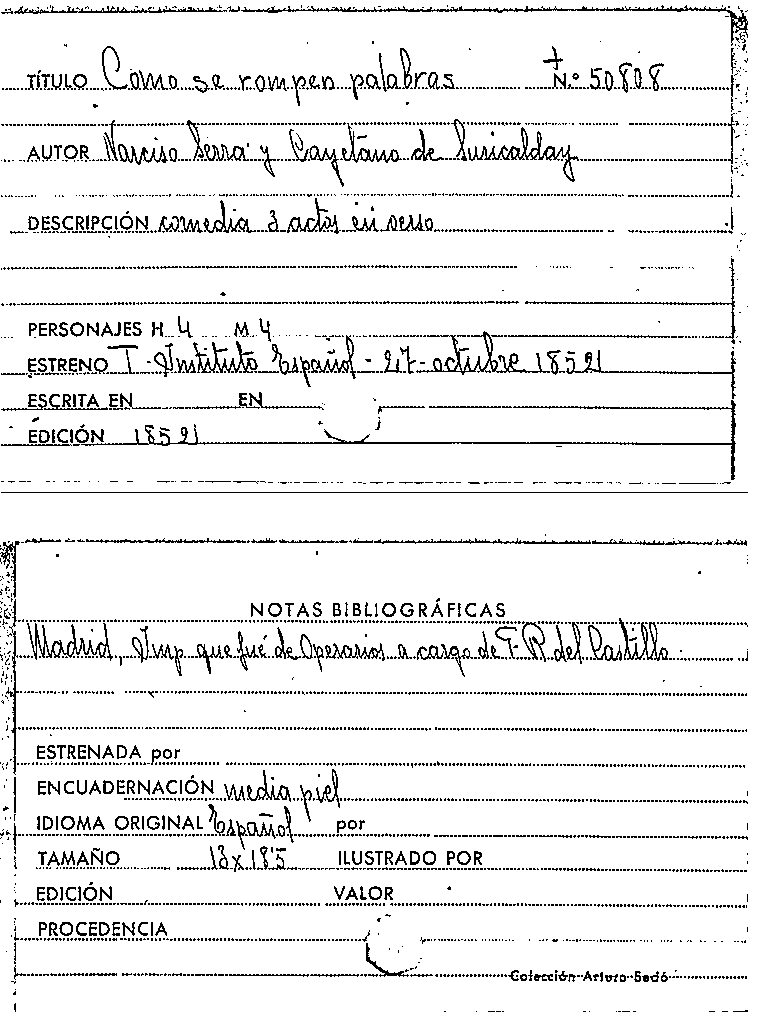 TÍTULO Como se rompen palabras N.º 50808
AUTOR Narciso Serra y Cayetano de Suricalday
DESCRIPCIÓN comedia 3 actos en verso
PERSONAJES H 4 M 4
ESTRENO T. Instituto Español - 27 - octubre 1852
ESCRITA EN EN
EDICIÓN 1852
NOTAS BIBLIOGRÁFICAS
Madrid, Imp que fué de Operarios a cargo de F. R. del Castillo.
ESTRENADA por
ENCUADERNACIÓN media piel
IDIOMA ORIGINAL Español por
TAMAÑO 13x18'5 ILUSTRADO POR
EDICIÓN VALOR
PROCEDENCIA
Colección Arturo Sedó